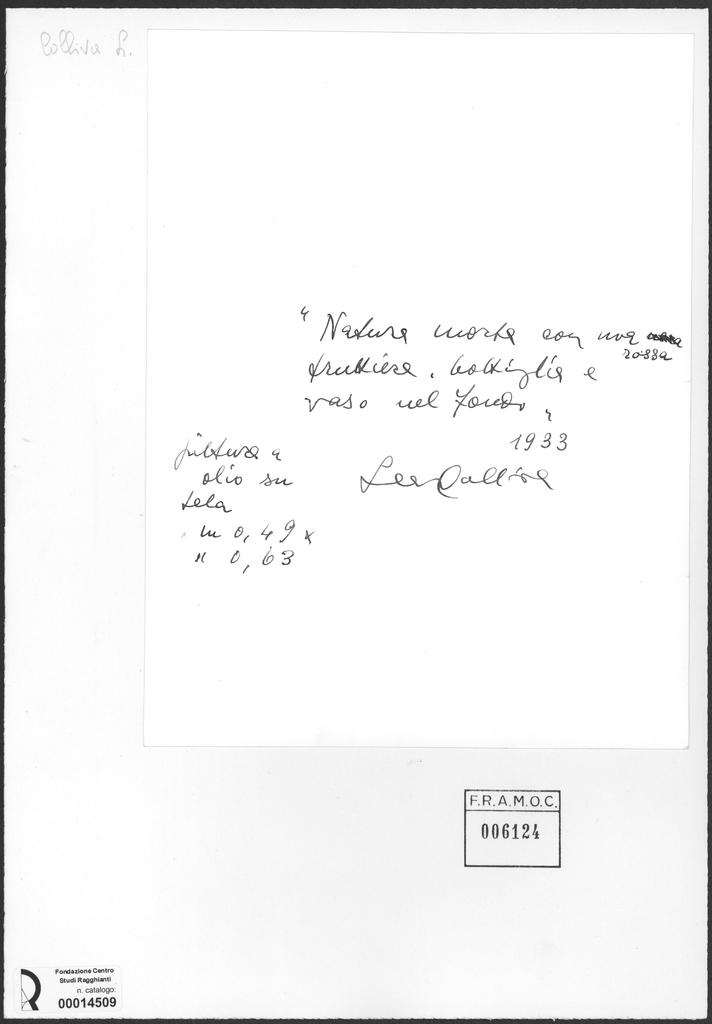 Colliva L.
" Natura morta con uva
rossa
fruttiera, bottiglia e
vaso nel fondo "
1933
Lea Colliva
pittura a
olio su
tela
m 0,49 x
" 0,63
F.R.A.M.O.C.
006124
Fondazione Centro
Studi Ragghianti
n. catalogo:
00014509